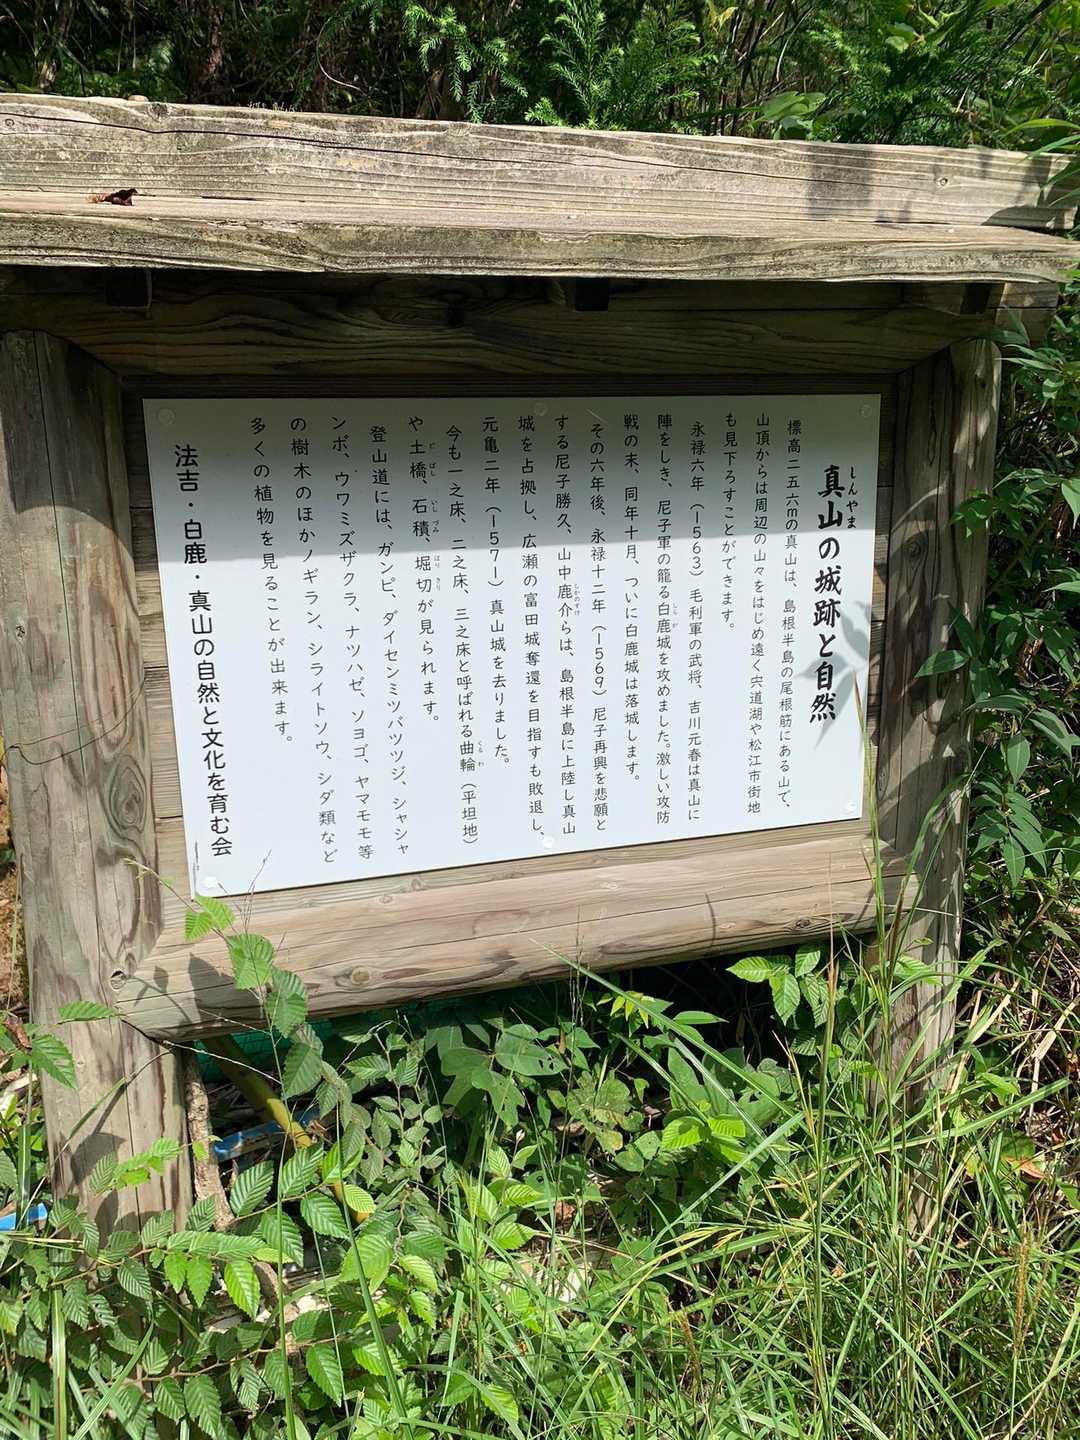 真山の城跡と自然
しんやま
標高二五六mの真山は、島根半島の尾根筋にある山で、
山頂からは周辺の山々をはじめ遠く宍道湖や松江市街地
も見下ろすことができます。
永禄六年（1563）毛利軍の武将、吉川元春は真山に
陣をしき、尼子軍の籠る白鹿城を攻めました。激しい攻防
しらが
戦の末、同年十月、ついに白鹿城は落城します。
その六年後、永禄十二年（1569）尼子再興を悲願と
する尼子勝久、山中鹿介らは、島根半島に上陸し真山
しかのすけ
城を占拠し、広瀬の富田城奪還を目指すも敗退し、
元亀二年（1571）真山城を去りました。
今も一之床、二之床、三之床と呼ばれる曲輪（平坦地）
くるわ
や土橋、石積、堀切が見られます。
どばし いしづみ ほりきり
登山道には、ガンピ、ダイセンミツバツツジ、シャシャ
ンボ、ウワミズザクラ、ナツハゼ、ソヨゴ、ヤマモモ等
の樹木のほかノギラン、シライトソウ、シダ類など
多くの植物を見ることが出来ます。
法吉・白鹿・真山の自然と文化を育む会